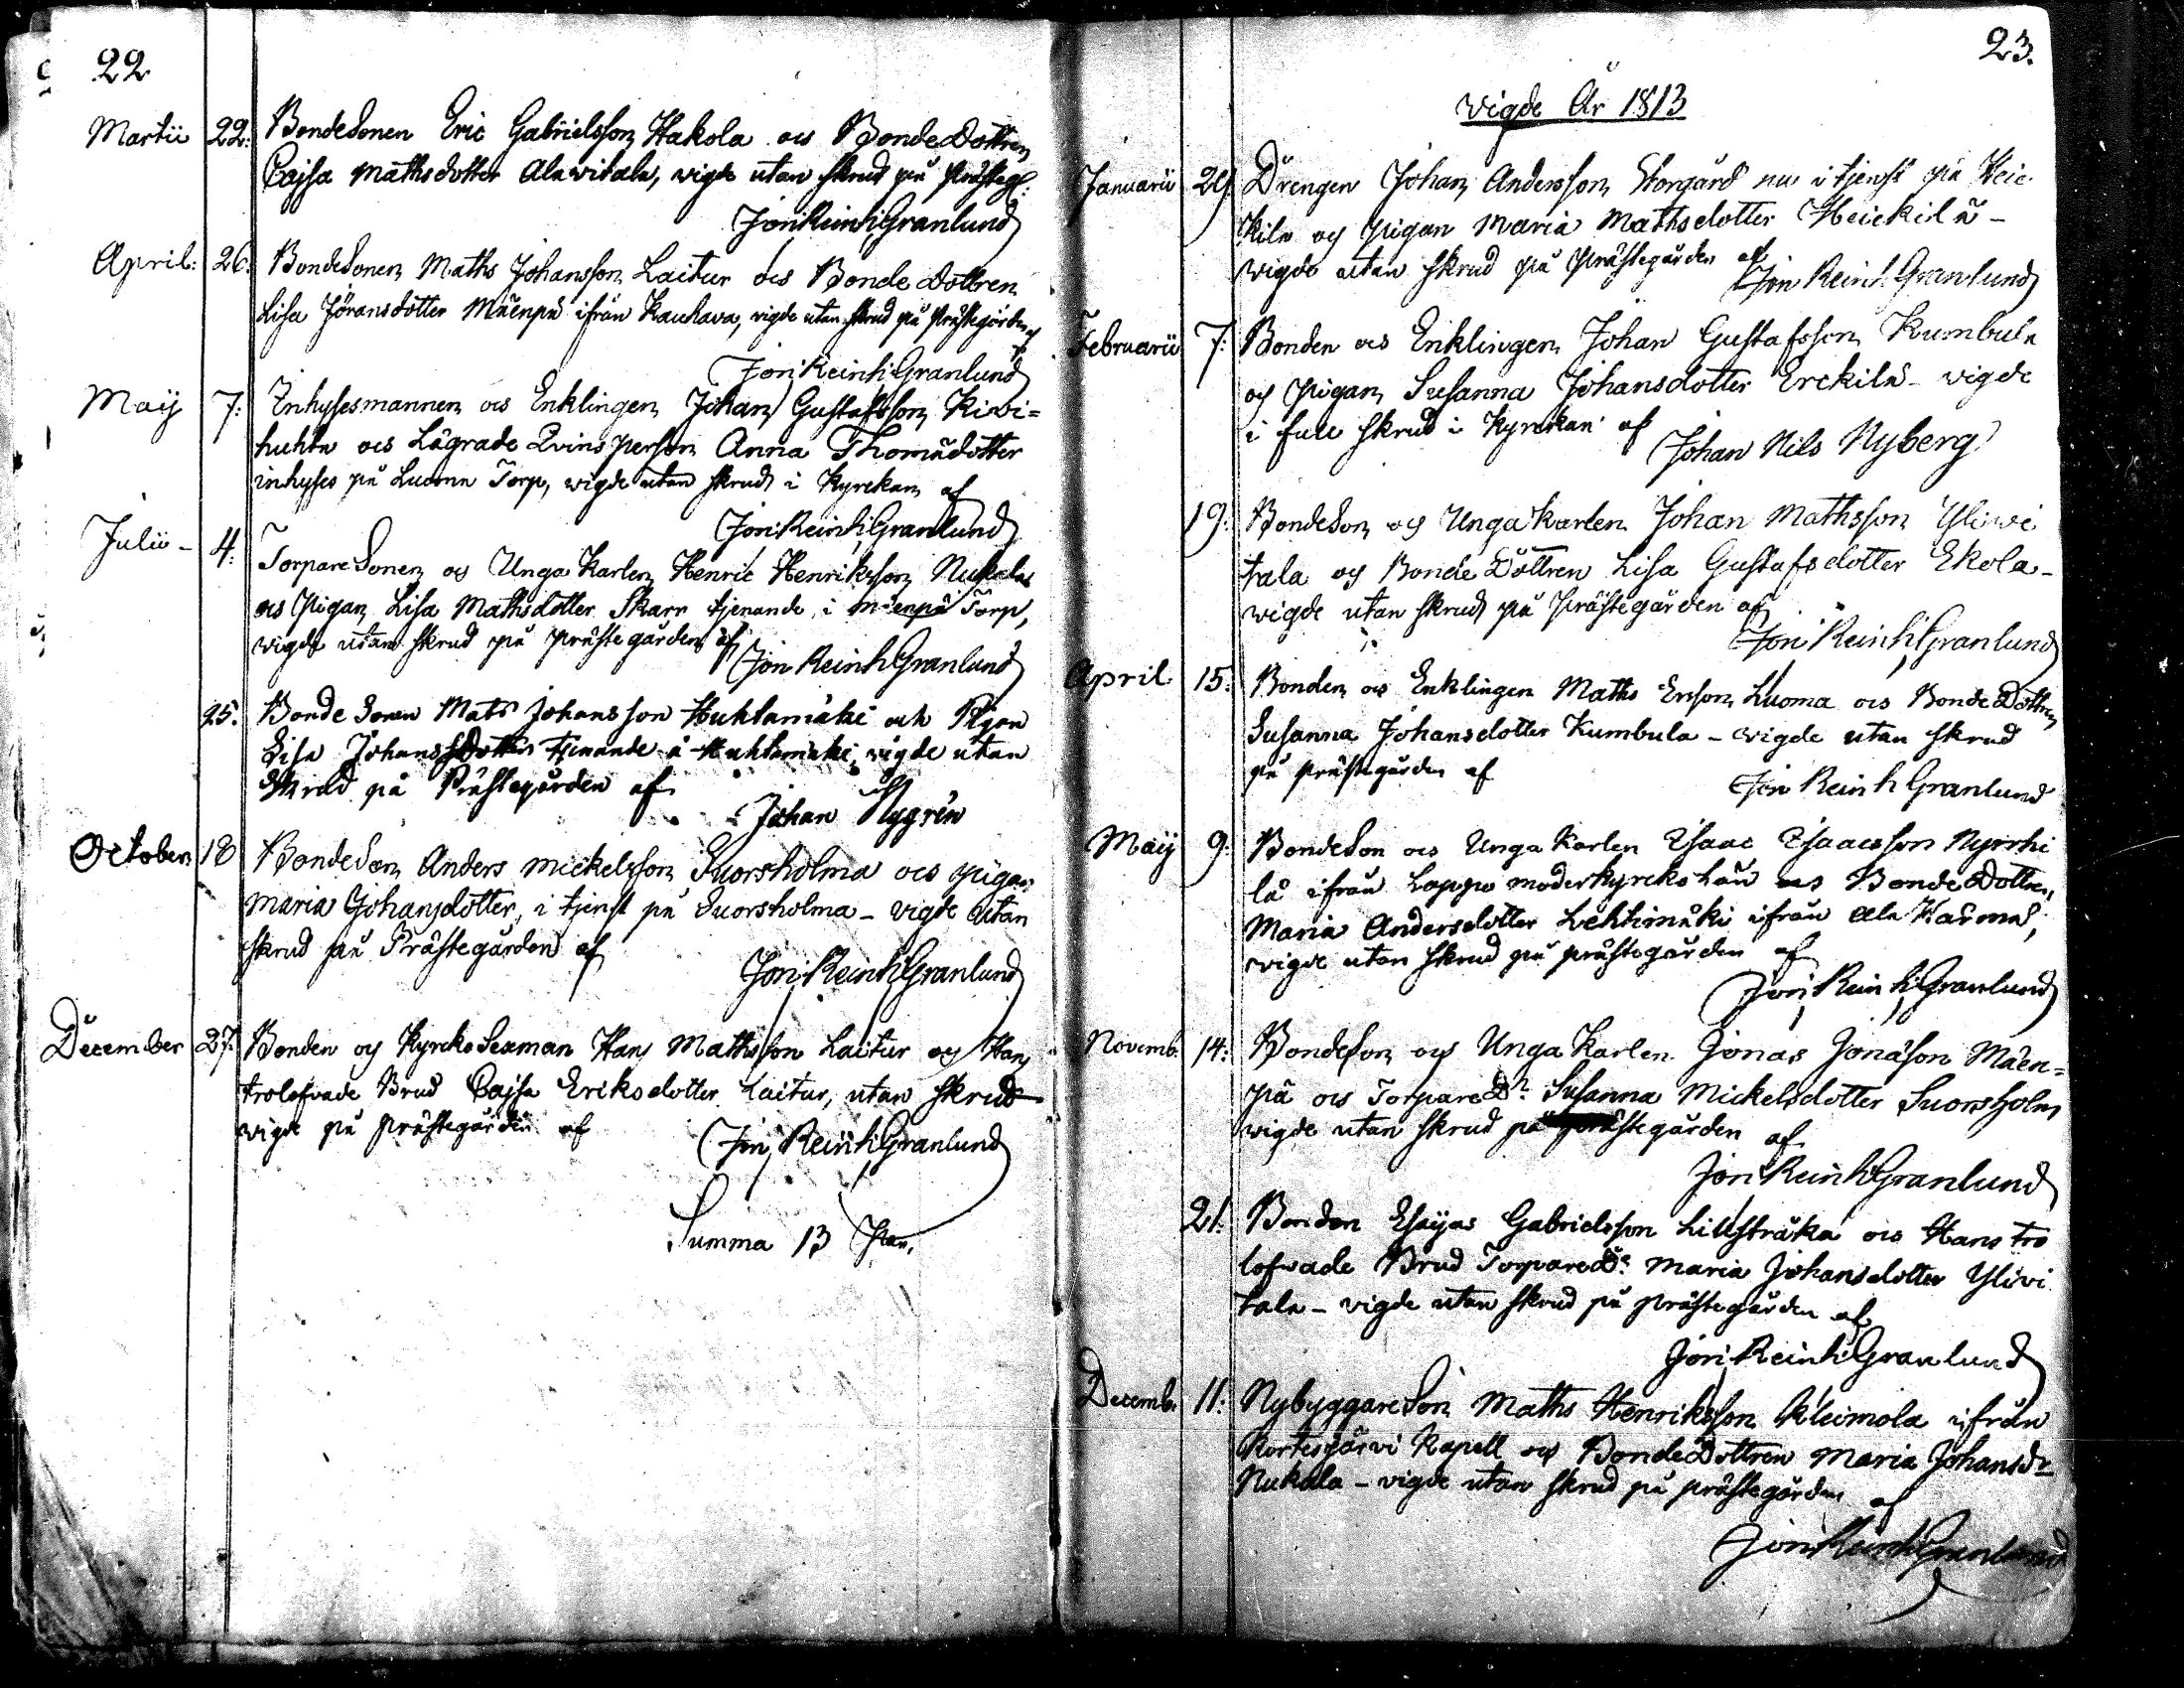 22
Martii 22: BondeSonen Eric Gabrielsson Hakola och BondeDottren
Cajsa Mathsdotter Alawitala, vigde utan skrud på Prästeg:
Jon: Reinh: Granlund
April: 26: BondeSonen Maths Johansson Laitur och Bonde Dottren
Lisa Jöransdotter Mäenpä ifrån Kauhava, vigde utan skrud på Prästegården af
Jon: Reinh: Granlund
Maij 7: Inhysesmannen och Enklingen Johan Gustafsson Kivi=
huhta och Lägrade Qvinsperson Anna Thomædotter
inhyses på Luoma Torp, wigde utan skrud i Kyrckan af
Jon: Reinh: Granlund
Julii - 4: TorpareSonen och Unga Karlen Henric Henriksson Nukala
och Pigan Lisa Mathsdotter Skarr tjenande i Mäenpä Torp,
wigde utan skrud på prästegården af
Jon Reinh Granlund
25. Bonde Sonen Mats Johansson Huhtamäki och Pigan
Lisa Johansdotter tjenande å Huhtamäki, wigde utan
Skrud på Prästegården af
Johan Nygrén
October 18 BondeSon Anders Mickelsson Suorsholma och pigan
Maria Johansdotter, i tjenst på Suorsholma - vigde utan
skrud på Prästegården af
Jon: Reinh: Granlund
December 27. Bonden och Kyrcko Seaman Hans Mathsson Laitur och Hans
trolofvade Brud Cajsa Eriksdotter Laitur, utan skrud
wigde på prästegården af
Jon: Reinh: Granlund
Summa 13 Par.
23.
Vigde År 1813
Januarii 29. Drengen Johan Andersson Storgård nu i tjenst på Heic
kilä och pigan Maria Mathsdotter Heickilä -
wigde utan skrud på Prästegården af
Jon Reinh Granlund
Februarii 7: Bonden och Enklingen Johan Gustafsson Kumbula
och Pigan Susanna Johansdotter Erckilä - vigde
i full skrud i Kyrckan af
Johan Nils Nyberg
19: BondeSon och Unga karlen Johan Mathsson Yliwi
tala och Bonde Dottren Lisa Gustafsdotter Ekola -
wigde utan skrud på Prästegården af
Jon: Reinh: Granlund
April 15: Bonden och Enklingen Maths Ersson Luoma och BondeDottren
Susanna Johansdotter Kumbula - vigde utan skrud
på prästegården af
Jon Reinh Granlund
Maij 9: BondeSon och Unga Karlen Isaac Isaacsson Nyrrhi
lä ifrån Lappo moderkyrcko han och BondeDottren,
Maria Andersdotter Lehtimäki ifrån Ala Härmä,
vigde utan skrud på prästegården af
Jon: Reinh: Granlund
Novemb. 14: BondeSon och Unga Karlen Jonas Jonasson Mäen=
pä och TorpareDr Susanna Mickelsdotter Suorsholm
wigde utan skrud på prästegården af
Jon Reinh Granlund
21: Bonden Esaijas Gabrielsson Lillstråka och Hans tro
lofvade Brud TorpareDr Maria Johansdotter Ylivi
tala - vigde utan skrud på prästegården af
Jon: Reinh: Granlund
Decemb. 11: NybyggareSon Maths Henriksson Kleimola ifrån
Kortesjärvi Kapell och BondeDottren Maria Johansdr
Nukala - vigde utan skrud på prästegården af
Jon: Reinh: Granlund